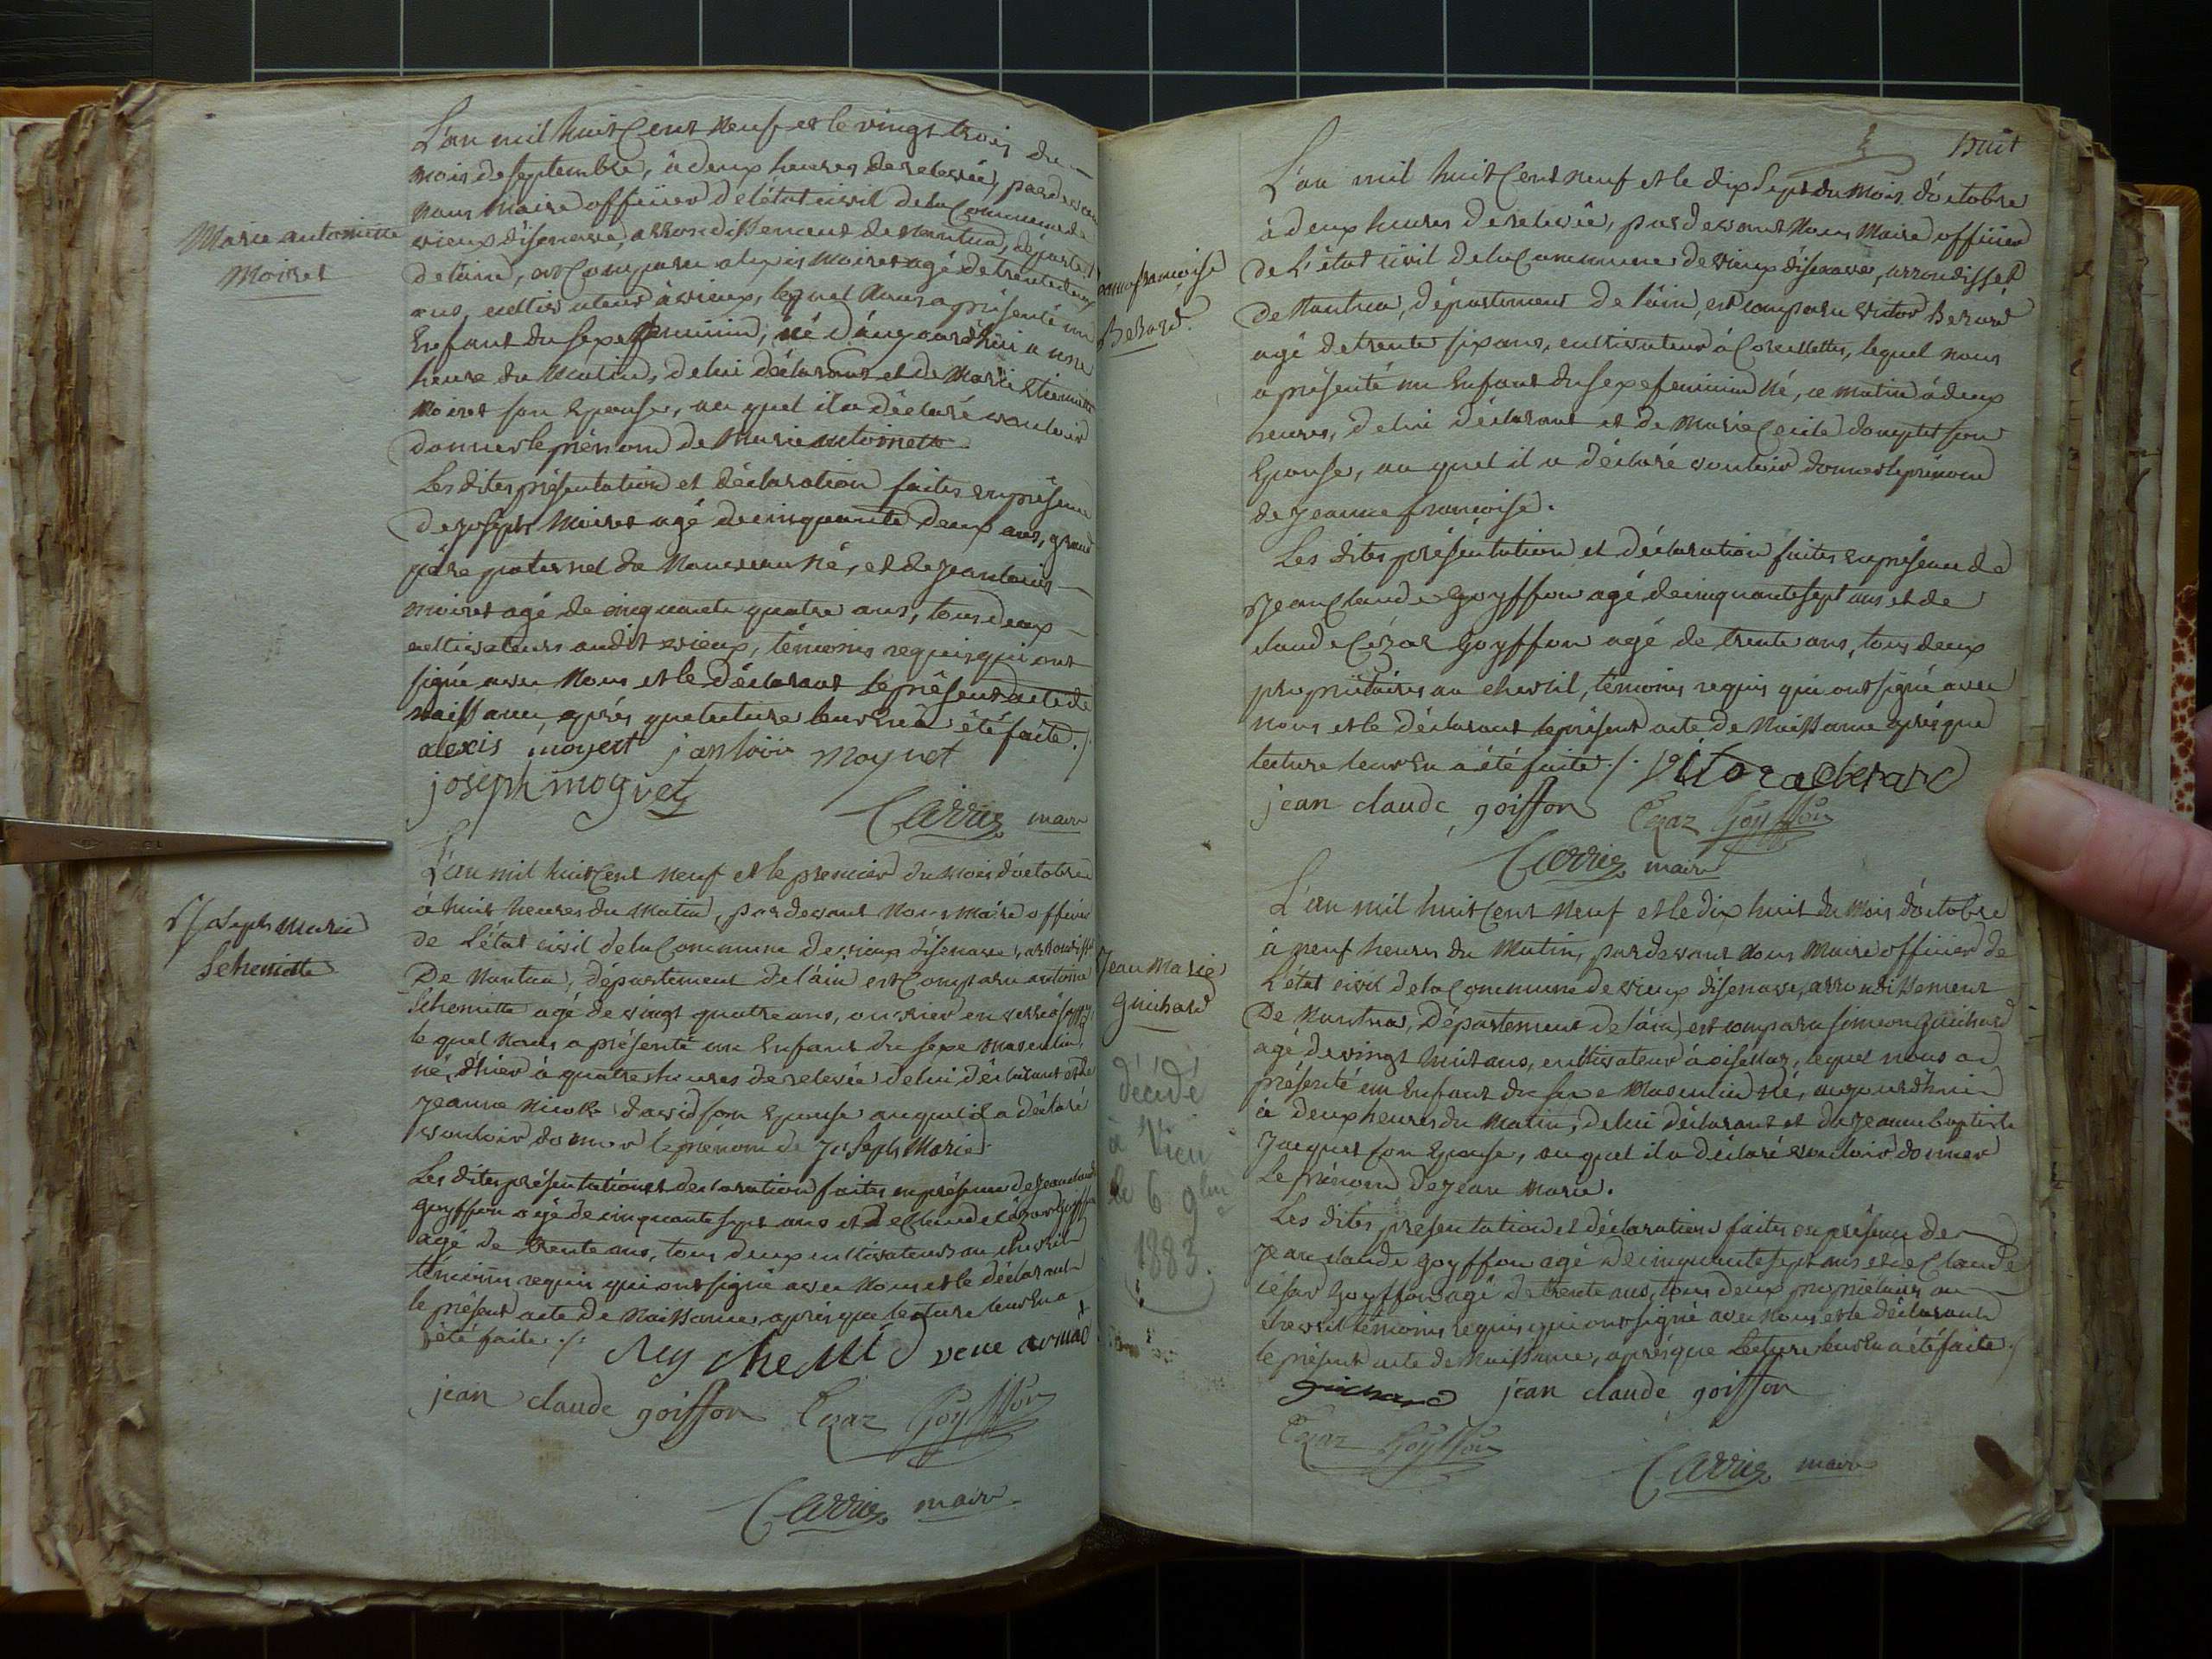 L'an mil huit Cent neuf et le vingt trois du
mois de septembre, à deux heures de relevée, pardevant
nous Maire officier de l'état civil de la Commune de
vieux disenave, arrondissement de Nantua, départet
de l'ain, est Comparu alexis Moiret agé de trente deux
ans, cultivateur à vieux, lequel Nous a présenté un
Enfant du sexe feminin, né d'aujourd'hui a une
heure du Matin, de lui déclarant et de Marie Etiennette
Moiret son Epouse, au quel il a déclaré vouloir
donner le prénom de Marie antoinette
Les dites présentation et déclaration faites en présence
de joseph Moiret agé de cinquante deux ans, grand
père paternel du Nouveau né, et de jean louis
moiret agé de cinquante quatre ans, tous deux
cultivateurs audit vieux, témoins requis qui ont
signé avec Nous et le déclarant le présent acte de
naissance après que lecture leur En a été faite ./.
alexis moyert janloüi moynet
joseph moyret
Carrier maire
Marie antoinette
Moiret
L'an mil huit Cent neuf et le premier du mois d'octobre
à huit heures du Matin, pardevant Nous Maire officier
de L'état civil de la Commune de vieux disenave, arrondisst
De Nantua, département de l'ain est Comparu antoine
Schemitte agé de vingt quatre ans, ouvrier en
le quel Nous a présenté un Enfant du sexe masculin,
né, d'hier à quatre heures de relevée de lui déclarant et de
jeanne Nicole david son Epouse auquel il a déclaré
vouloir donner le prénom de joseph Marie
Les dites présentation et declaration faites en présence de jean claude
goyffon agé de cinquante sept ans et de Claude cézar goyffon
agé de trente ans, tous deux cultivateurs au chevril
témoins requis qui ont signé avec Nous et le déclarant
le présent acte de Naissance, après que lecture leur En a
été faite ./.
jean claude goiffon Cezar Goyffon
Carrier maire
Joseph Marie
Schemitte
huit
L'an mil huit Cent neuf et le dix Sept du Mois d'octobre
à deux heures de relevée, pardevant Nous Maire officier
de L'état civil de la Commune de vieux disenave, arrondisset
de Nantua, département de l'ain, est comparu victor Berard
agé de trente six ans, cultivateur à Corcellettes, lequel nous
a présenté un Enfant du sexe feminin né, ce matin à deux
heures, de lui déclarant et de Marie Cecile domptet son
Epouse, au quel il a déclaré vouloir donner le prénom
de jeanne françoise.
Les dites présentation et déclaration faites en présence de
Jean Claude Goyffon agé de cinquante sept ans et de
claude Cézar Goyffon agé de trente ans, tous deux
propriétaires au chevril, témoins requis qui ont signé avec
nous et le déclarant le présent acte de Naissance après que
lecture leur En a été faite ./.
jean claude goiffon Cezar Goyffon
Carrier maire
françoise
Berard.
L'an mil huit Cent neuf et le dix huit du Mois d'octobre
à neuf heures du Matin, pardevant Nous Maire officier de
L'état civil de la Commune de vieux disenave, arrondissement
De Nantua, Département de l'ain, est comparu simeon Guichard
agé de vingt huit ans, cultivateur à oisellaz, lequel nous a
présenté un Enfant du sexe Masculin né, aujourd'hui
à deux heures du Matin, de lui déclarant et de jeanne baptiste
Jacquet son Epouse, au quel il a déclaré vouloir donner
Le prénom de jean Marie.
Les dites présentation et déclaration faites en présence de
jean claude goyffon agé de cinquante sept ans et de Claude
cézar Goyffon agé de trente ans, tous deux propriétaires au
chevril témoins requis qui ont signé avec Nous et le déclarant
le présent acte de Naissance, après que Lecture leur En a été faite ./
guichard jean claude goiffon
Cezar Goyffon
Carrier maire
Jean Marie
Guichard
décédé
à Vieu
le 6 9bre
1883.